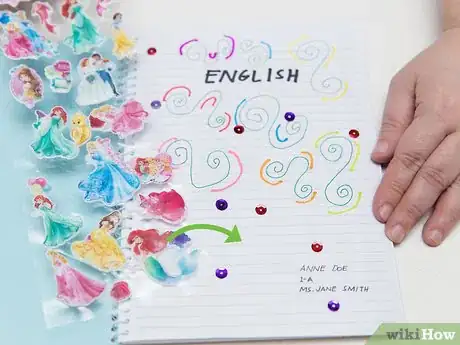 ENGLISH
ANNE DOE
1-A
MS. JANE SMITH
wikiHow